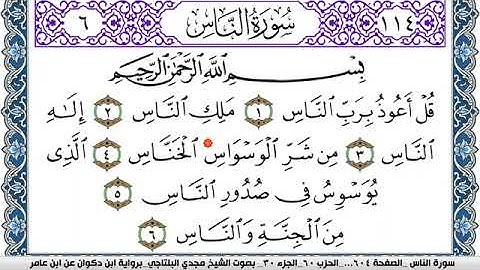 ٦ سُورَةُ النَّاسِ ١١٤
بِسْمِ اللَّهِ الرَّحْمَٰنِ الرَّحِيمِ
قُلْ أَعُوذُ بِرَبِّ النَّاسِ ١ مَلِكِ النَّاسِ ٢ إِلَٰهِ
النَّاسِ ٣ مِن شَرِّ الْوَسْوَاسِ الْخَنَّاسِ ٤ الَّذِي
يُوَسْوِسُ فِي صُدُورِ النَّاسِ ٥
مِنَ الْجِنَّةِ وَالنَّاسِ ٦
سورة الناس_ الصفحة ٦٠٤... الحزب ٦٠_ الجزء ٣٠_ بصوت الشيخ مجدي البلتاجي_ برواية ابن دكوان عن ابن عامر